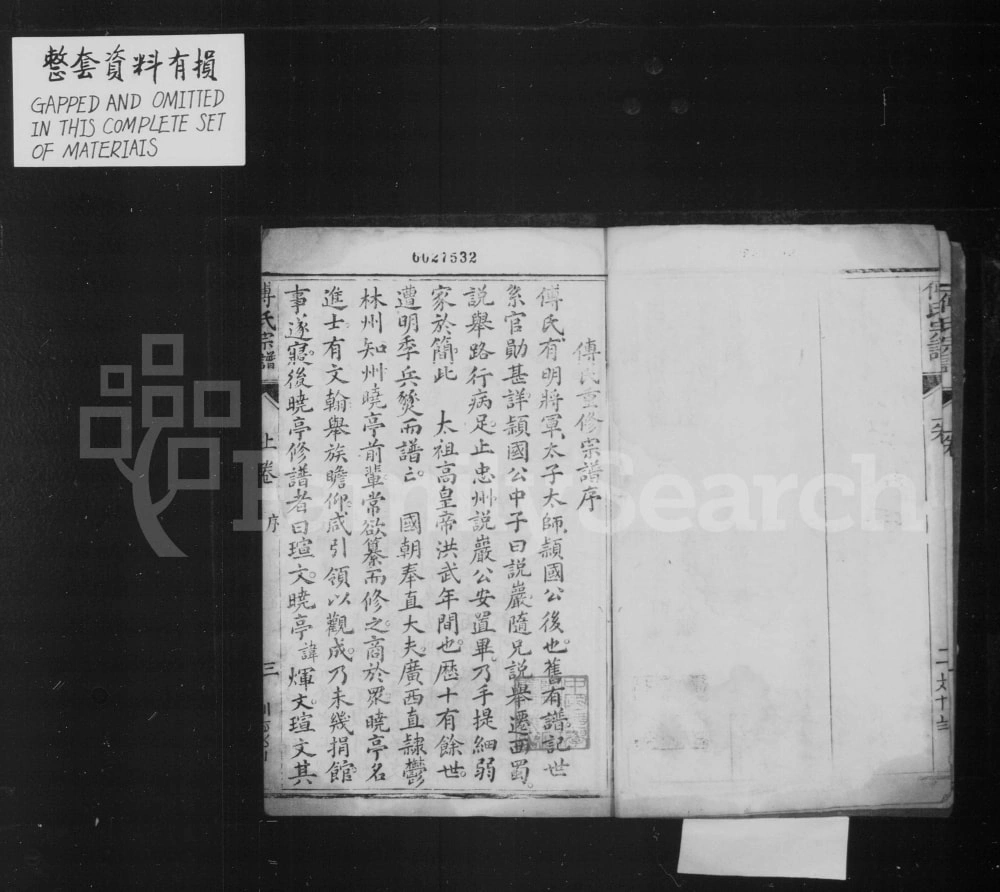 整套資料有損
GAPPED AND OMITTED
IN THIS COMPLETE SET
OF MATERIAIS
0027532
傅氏重修宗譜序
傅氏有明將軍太子太師潁國公後也舊有譜記世
系官勛甚詳潁國公中子曰説巖隨兄説舉遷西蜀
説舉路行病足止忠州説巖公安置畢乃手提細弱
家於簡此 太祖高皇帝洪武年間也歷十有餘世
遭明季兵燹而譜亡 國朝奉直大夫廣西直隸鬱
林州知州曉亭前輩常欲纂而修之商於眾曉亭名
進士有文翰舉族瞻仰咸引領以觀成乃未幾捐館
事遂寢後曉亭修譜者曰瑄文曉亭諱煇文瑄文其
傅氏宗譜 上卷 序 三
FamilySearch